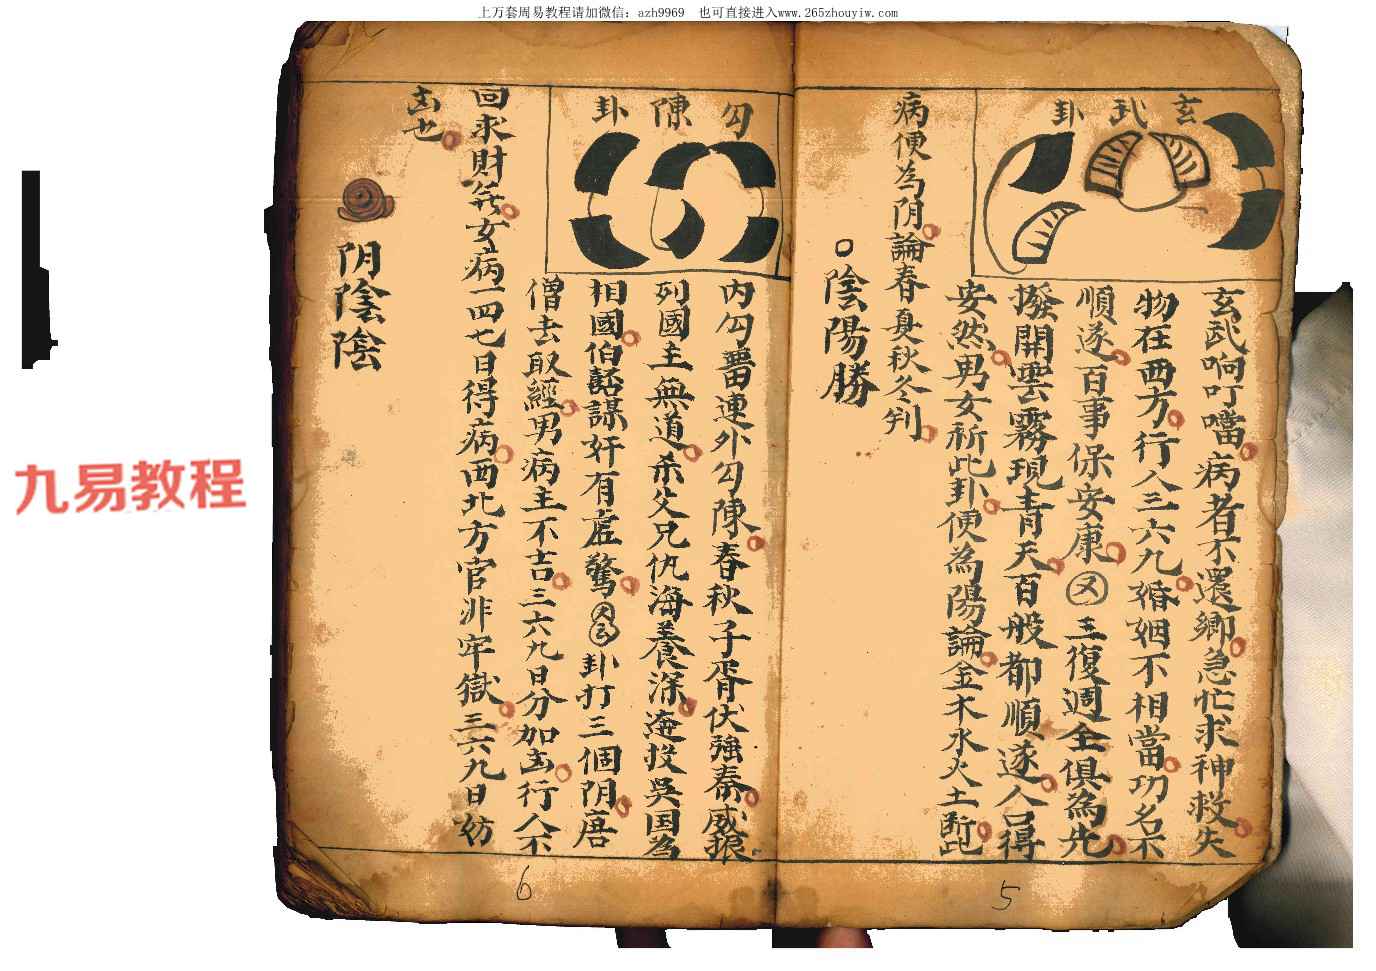 上万套周易教程请加微信：azh9969　也可直接进入www.265zhouyiw.com
玄武卦
玄武响叮噹病者不還鄉急忙求神救失
物在西方行人三六九婚姻不相當功名不
順遂百事保安康又三復週全俱為先
撥開雲霧現青天百般都順遂人口得
安然男女祈此卦便為陽論金木水火土断此
病便為阴論春夏秋冬判
陰陽勝
5
勾陳卦
内勾畨連外勾陳春秋子胥伏強秦威狼
列國主無道杀父兄仇海養深逃投吳国為
相國伯嚭謀奸有虛驚又云卦打三個阴唐
僧去取經男病主不吉三六九日分加凶行人不
回求財笑女病一四七日得病西北方官非牢獄三六九日妨
凶也
阴陰陰
6
九易教程